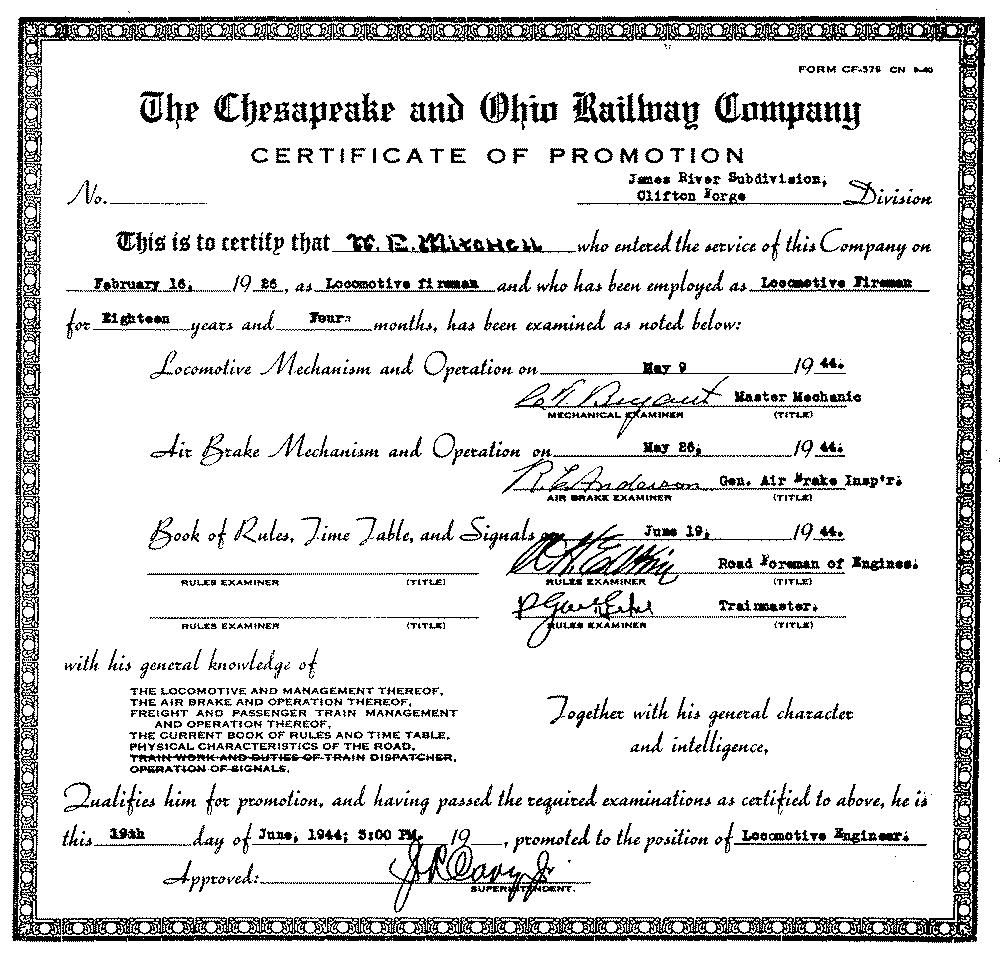 FORM CF-579 CN 9-40
The Chesapeake and Ohio Railway Company
CERTIFICATE OF PROMOTION
James River Subdivision,
No. Clifton Forge Division
This is to certify that W. E. Mitchell who entered the service of this Company on
February 16, 19 26, as Locomotive fireman and who has been employed as Locomotive Fireman
for Eighteen years and Four months, has been examined as noted below:
Locomotive Mechanism and Operation on May 9 19 44.
Bryant Master Mechanic
MECHANICAL EXAMINER (TITLE)
Air Brake Mechanism and Operation on May 26, 19 44.
R. E. Anderson Gen. Air Brake Insp'r.
AIR BRAKE EXAMINER (TITLE)
Book of Rules, Time Table, and Signals on June 19, 19 44.
Road Foreman of Engines.
RULES EXAMINER (TITLE) RULES EXAMINER (TITLE)
Trainmaster.
RULES EXAMINER (TITLE) RULES EXAMINER (TITLE)
with his general knowledge of
THE LOCOMOTIVE AND MANAGEMENT THEREOF,
THE AIR BRAKE AND OPERATION THEREOF,
FREIGHT AND PASSENGER TRAIN MANAGEMENT
AND OPERATION THEREOF,
THE CURRENT BOOK OF RULES AND TIME TABLE,
PHYSICAL CHARACTERISTICS OF THE ROAD,
TRAIN WORK AND DUTIES OF TRAIN DISPATCHER,
OPERATION OF SIGNALS,
Together with his general character
and intelligence,
Qualifies him for promotion, and having passed the required examinations as certified to above, he is
this 19th day of June, 1944; 5:00 PM. 19 , promoted to the position of Locomotive Engineer.
Approved:
SUPERINTENDENT.